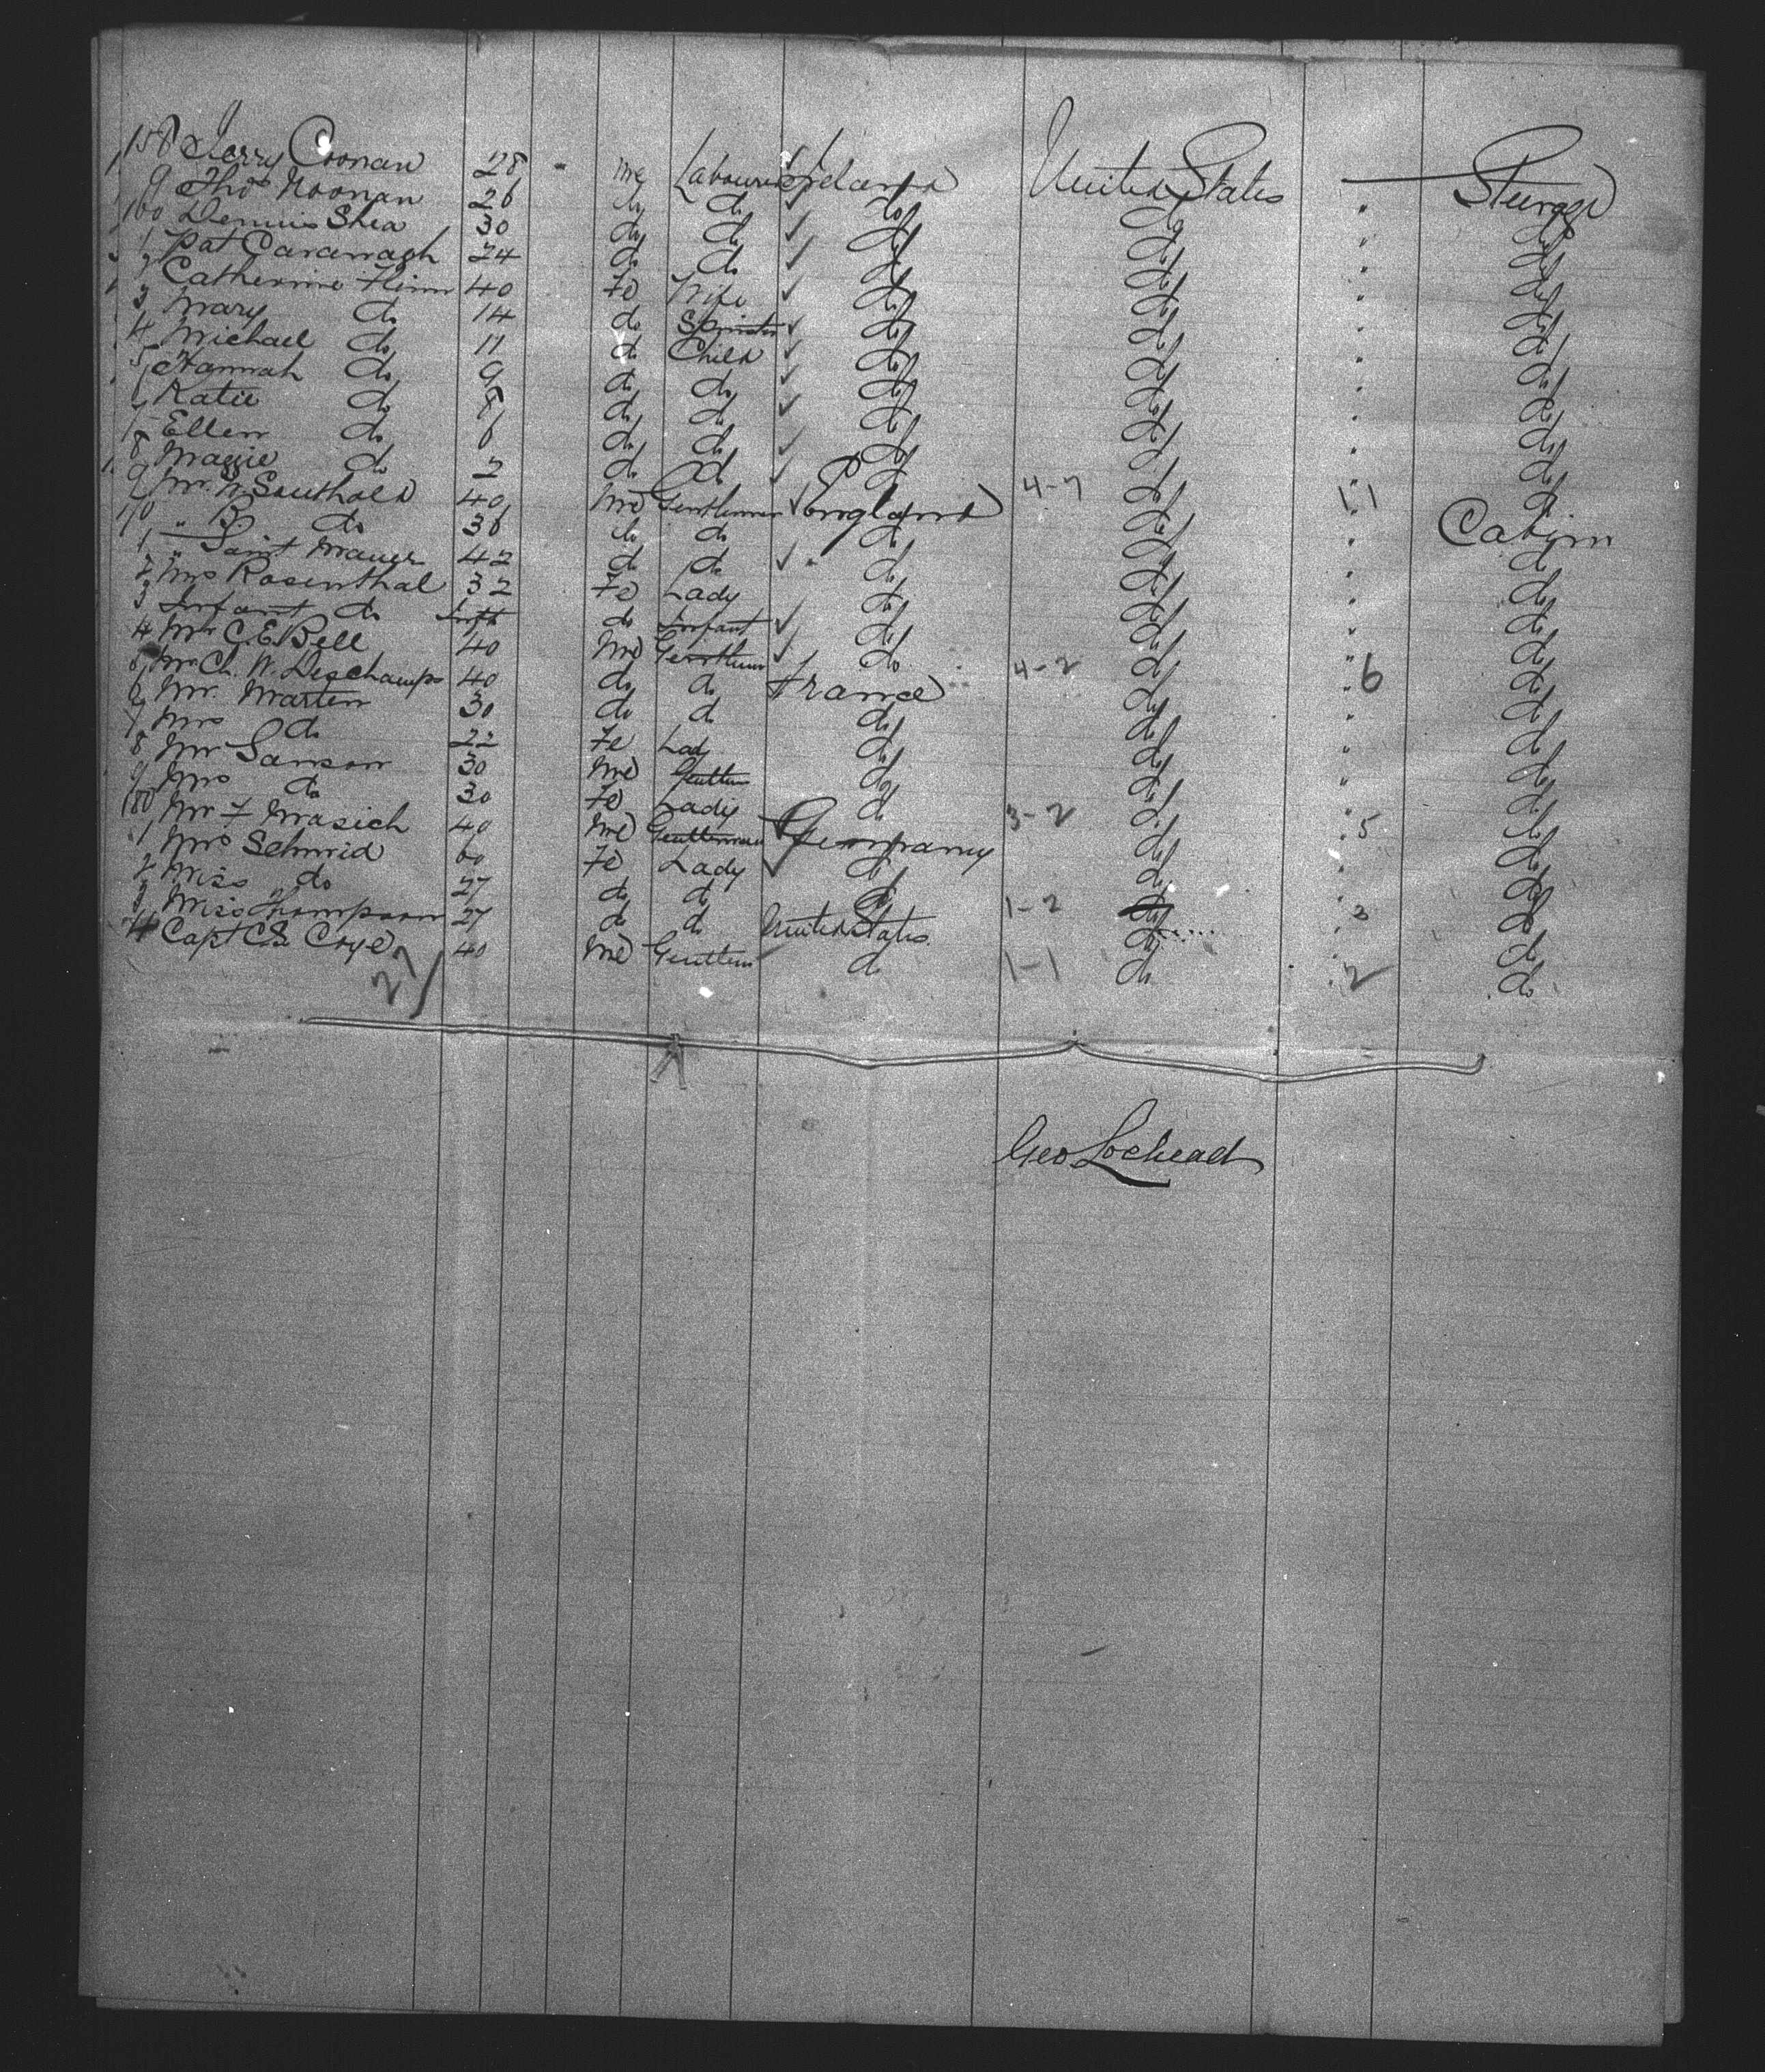 158 Jerry Coonan 28 " Me Labourer Ireland United States — Steerage
9 Thos Noonan 26 do do do do " do
160 Dennis Shea 30 do do do do " do
1 Pat Cavanagh 24 do do do do " do
2 Catherine Flinn 40 Fe Wife do do " do
3 Mary do 14 do Spinster do do " do
4 Michael do 11 do Child do do " do
5 Hannah do 9 do do do do " do
6 Katie do 8 do do do do " do
7 Ellen do 6 do do do do " do
8 Maggie do 2 do do do do " do
9 Mr. W. Southold 40 Me Gentleman England 4-7 do 11 Cabin
170 " B do 36 do do do do " do
1 " Saint Mauer 42 do do do do " do
2 Mrs Rosenthal 32 Fe Lady do do " do
3 Infant do Inft do Infant do do " do
4 Mr C. E. Bell 40 Me Gentlem do do " do
5 Mr Ch. W. Deschamps 40 do do France 4-2 do " 6 do
6 Mr. Marten 30 do do do do " do
7 Mrs do 22 Fe Lady do do " do
8 Mr Sanson 30 Me Gentlem do do " do
9 Mrs do 30 Fe Lady do do do
180 Mr F Masich 40 Me Gentleman Germany 3-2 do 5 do
1 Mrs Schmid 60 Fe Lady do do do
2 Miss do 27 do do do do do
3 Miss Thompson 27 do do United States 1-2 do 3 do
4 Capt C. S. Coye 40 Me Gentlem do 1-1 do 2 do
27
Geo Lochead